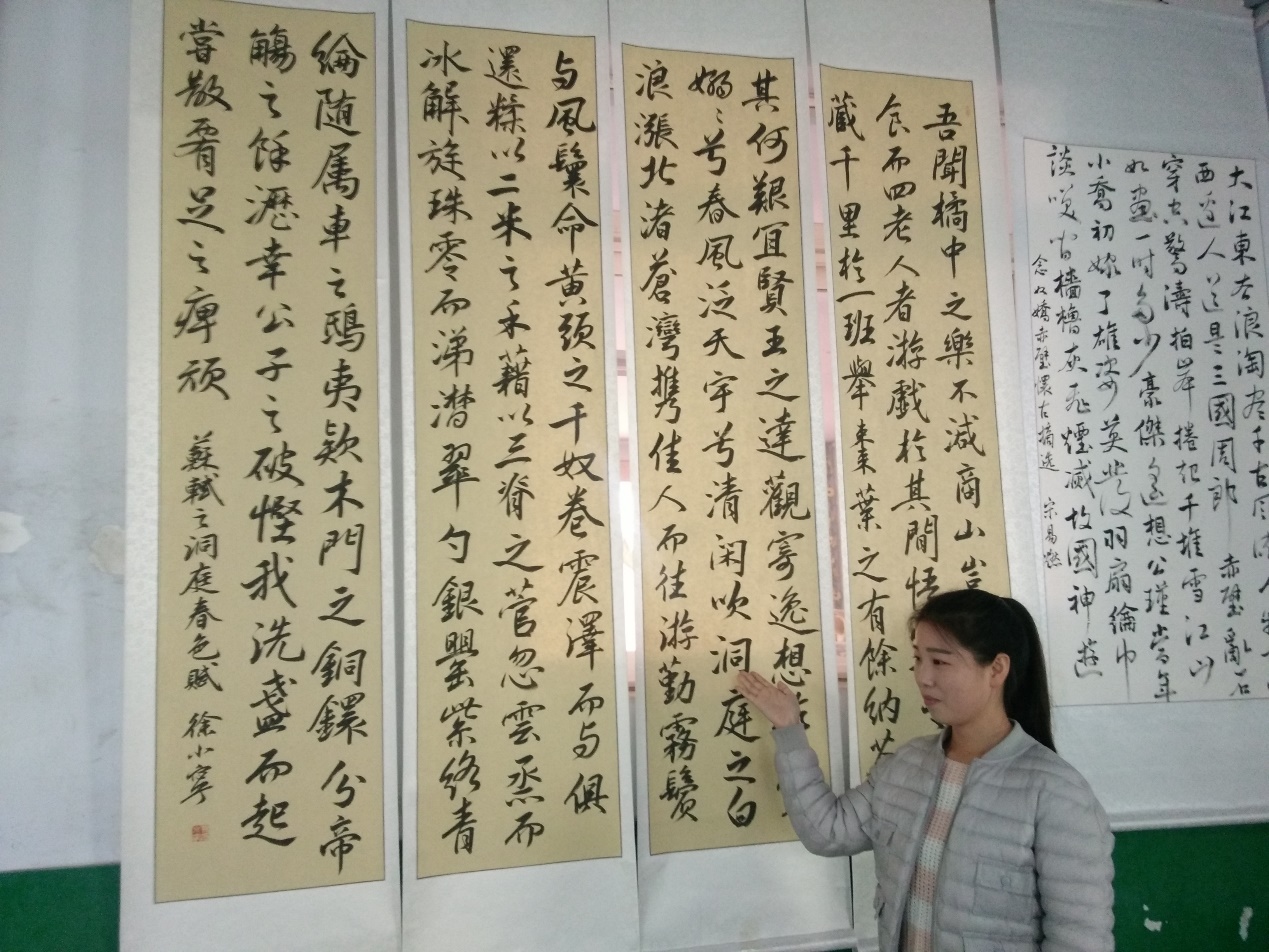 大江東去浪淘尽千古風流人物
西邊人道是三國周郎赤壁亂石
穿空驚濤拍岸捲起千堆雪江山
如畫一時多少豪傑遙想公瑾當年
小喬初嫁了雄姿英發羽扇綸巾
談笑間檣櫓灰飛煙滅故國神遊
念奴嬌赤壁懷古摘选 宋易
吾聞橘中之樂不減商山豈
食而四老人者游戲於其間悟
藏千里於一班舉棗葉之有餘納芥
其何艱宜賢王之達觀寄逸想
嫋〻兮春風泛天宇兮清閑吹洞庭之白
浪漲北渚蒼灣攜佳人而往游勤霧鬢
与風鬟命黄頭之千奴卷震澤而与俱
還糅以二米之禾藉以三脊之菅忽雲烝而
冰解旋珠零而涕潸翠勺銀罌紫絡青
綸随属車之鴟夷款木門之銅鐶分帝
觴之餘瀝幸公子之破慳我洗盞而起
嘗散腰足之痺頑
蘇軾之洞庭春色賦 徐小寧